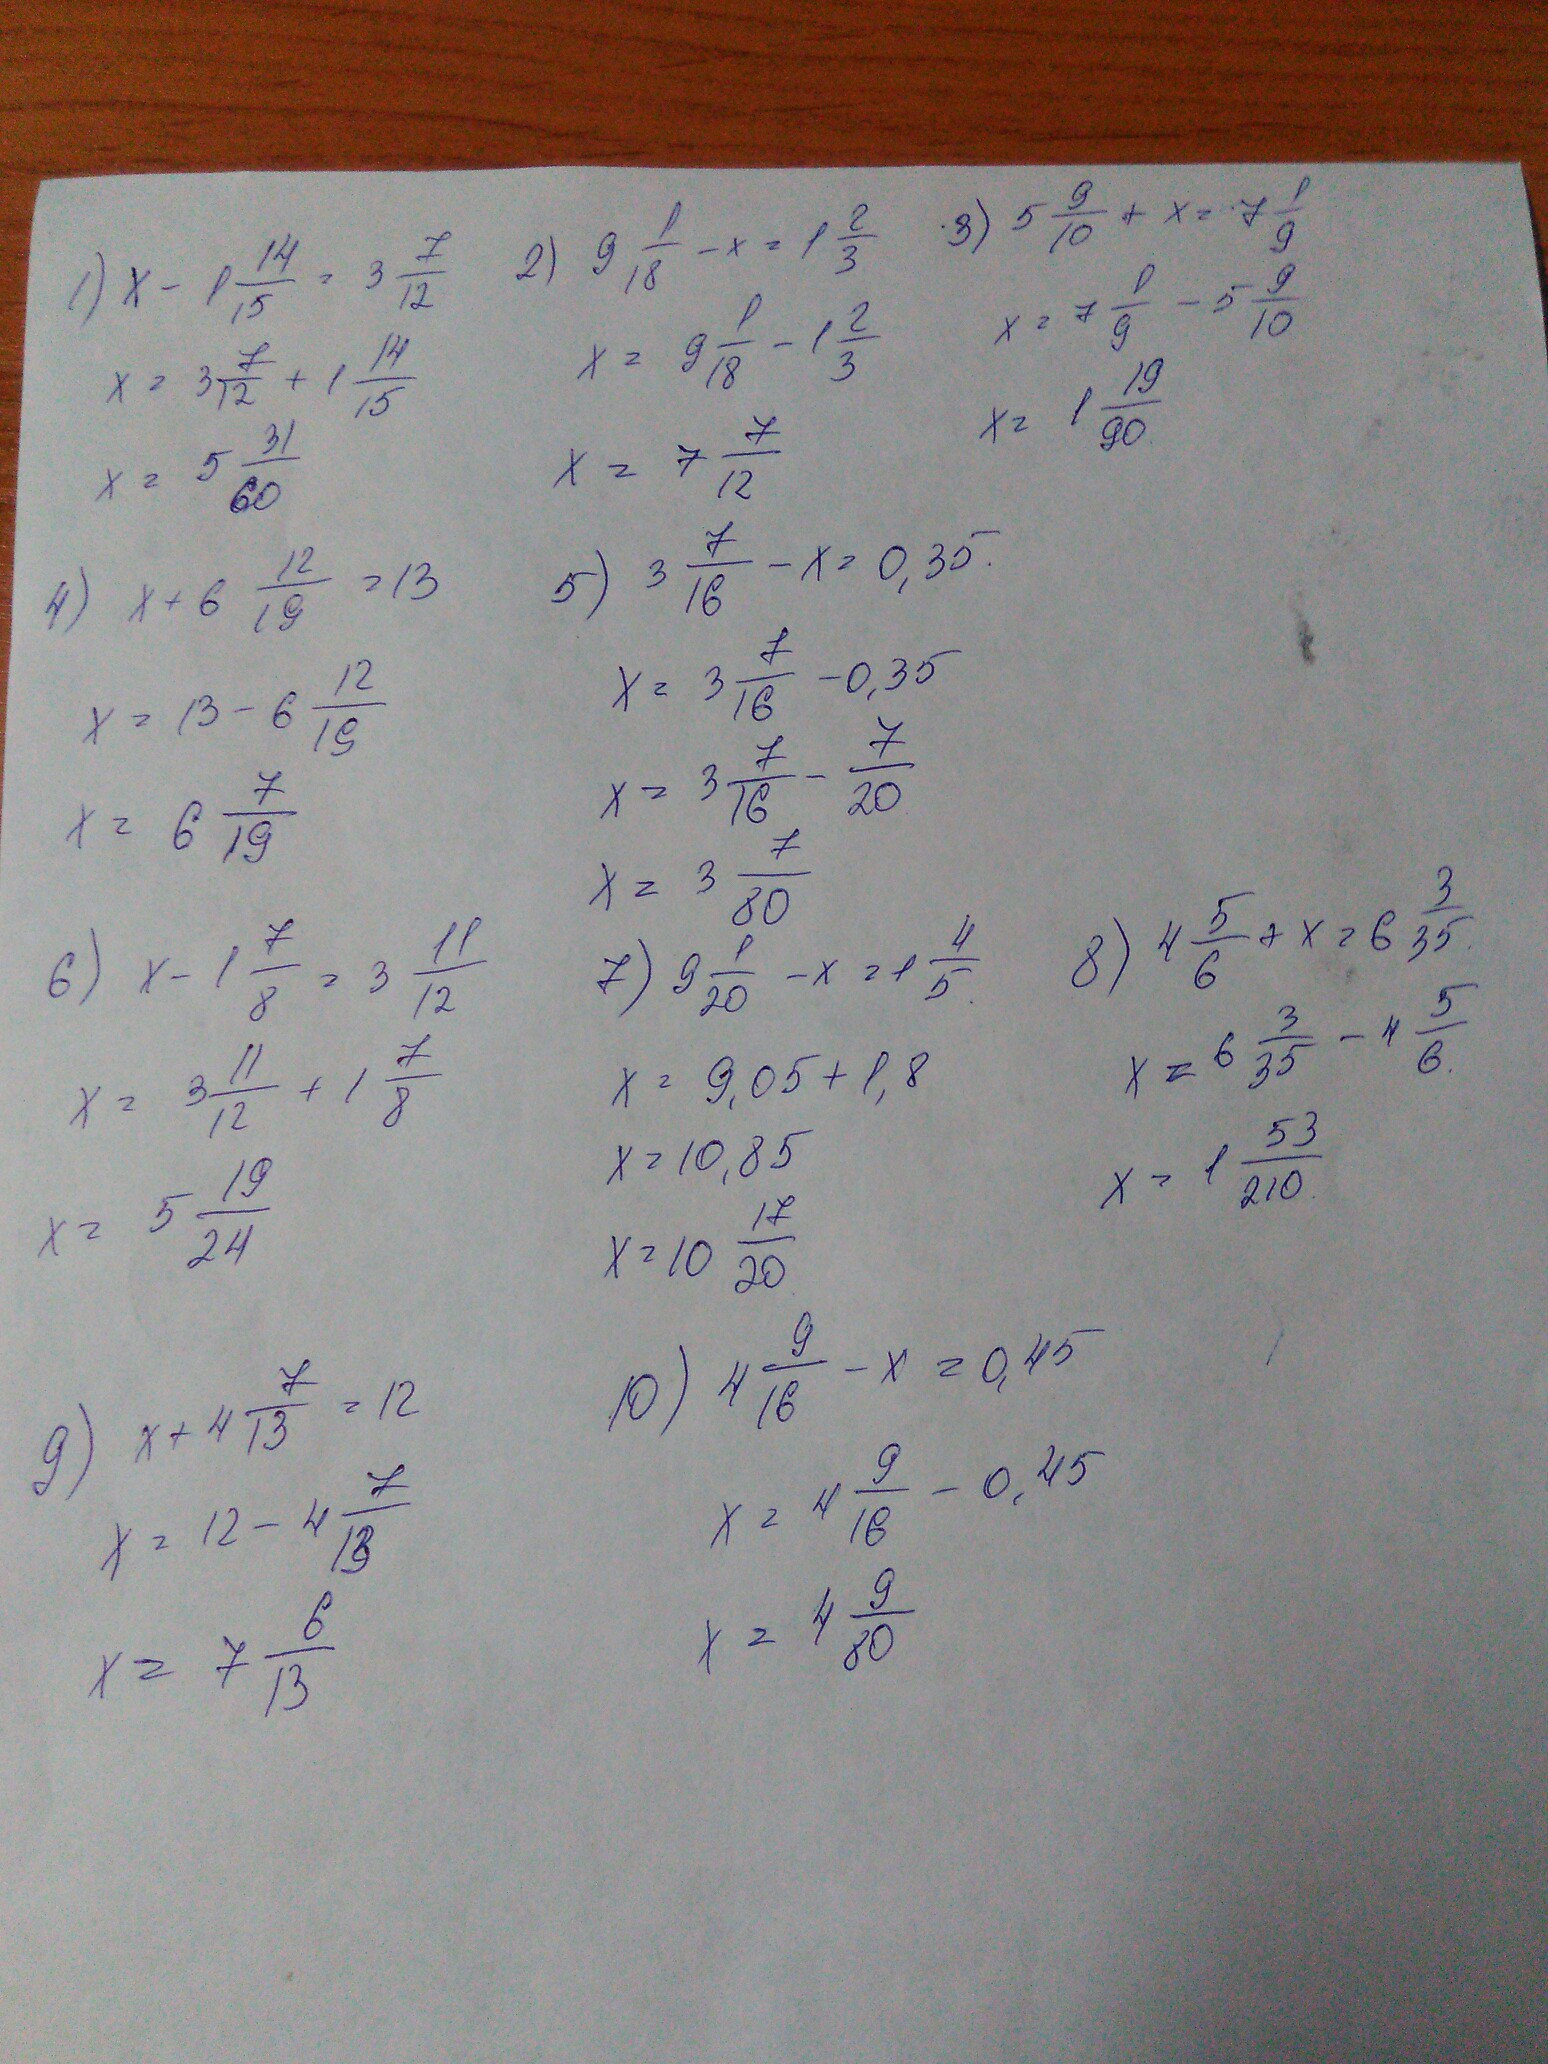 1) x - 1 14/15 = 3 7/12
x = 3 7/12 + 1 14/15
x = 5 31/60
2) 9 1/18 - x = 1 2/3
x = 9 1/18 - 1 2/3
x = 7 7/12
3) 5 9/10 + x = 7 1/9
x = 7 1/9 - 5 9/10
x = 1 19/90
4) x + 6 12/19 = 13
x = 13 - 6 12/19
x = 6 7/19
5) 3 7/16 - x = 0,35.
x = 3 7/16 - 0,35
x = 3 7/16 - 7/20
x = 3 7/80
6) x - 1 7/8 = 3 11/12
x = 3 11/12 + 1 7/8
x = 5 19/24
7) 9 1/20 - x = 1 4/5.
x = 9,05 + 1,8
x = 10,85
x = 10 17/20
8) 4 5/6 + x = 6 3/35.
x = 6 3/35 - 4 5/6.
x = 1 53/210.
9) x + 4 7/13 = 12
x = 12 - 4 7/13
x = 7 6/13
10) 4 9/16 - x = 0,45
x = 4 9/16 - 0,45
x = 4 9/80